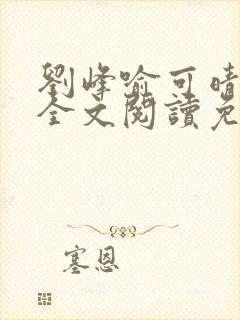 劉峰喻可晴
全文閱讀免
塞恩